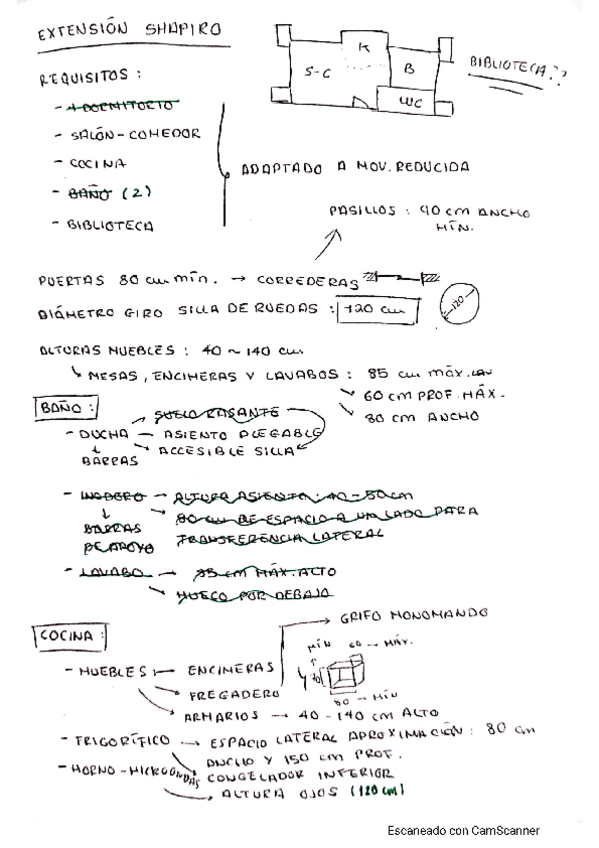 EXTENSIÓN SHAPIRO
K
S-C
B
WC
BIBLIOTECA??
REQUISITOS:
- 1 DORMITORIO
- SALÓN-COMEDOR
- COCINA
- BAÑO (2)
- BIBLIOTECA
ADAPTADO A MOV. REDUCIDA
PASILLOS: 90 cm ANCHO
MÍN.
PUERTAS 80 cm mín. → CORREDERAS
DIÁMETRO GIRO SILLA DE RUEDAS: 120 cm
120
ALTURAS MUEBLES: 40 ~ 140 cm
↳ MESAS, ENCIMERAS Y LAVABOS: 85 cm máx. LAV
↘ 60 cm PROF. MÁX.
↘ 80 cm ANCHO
BAÑO:
→ SUELO RASANTE
- DUCHA — ASIENTO PLEGABLE
↓ → ACCESIBLE SILLA
BARRAS
- INODORO → ALTURA ASIENTO: 40-50 cm
↓ → 80 cm DE ESPACIO A UN LADO PARA
BARRAS TRANSFERENCIA LATERAL
DE APOYO
- LAVABO → 85 cm MÁX. ALTO
→ HUECO POR DEBAJO
COCINA:
→ GRIFO MONOMANDO
MÍN 60 → MÁX.
- MUEBLES: → ENCIMERAS
70
→ FREGADERO
80 → MÍN
→ ARMARIOS → 40-140 cm ALTO
- FRIGORÍFICO → ESPACIO LATERAL APROXIMACIÓN: 80 cm
ANCHO Y 150 cm PROF.
- HORNO-MICROONDAS CONGELADOR INFERIOR
→ ALTURA OJOS (120 cm)
Escaneado con CamScanner